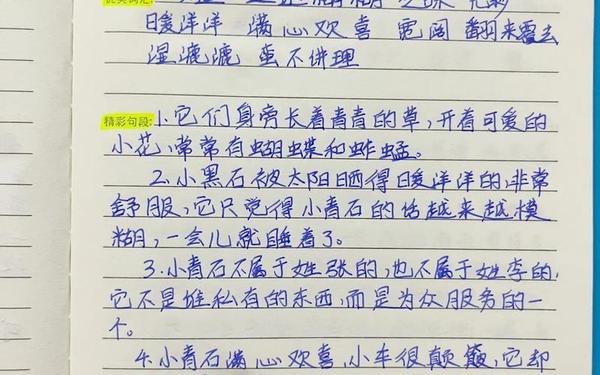 暖洋洋 满心欢喜 宽阔 翻来覆去
湿漉漉 蛮不讲理
精彩句段:1.它们身旁长着青青的草,开着可爱的
小花,常常有蝴蝶和蚱蜢。
2.小黑石被太阳晒得暖洋洋的,非常
舒服,它只觉得小青石的话越来越模
糊,一会儿就睡着了。
3.小青石不属于姓张的,也不属于姓李的,
它不是谁私有的东西,而是为众服务的一
个。
4.小青石满心欢喜,小车很颠簸,它却